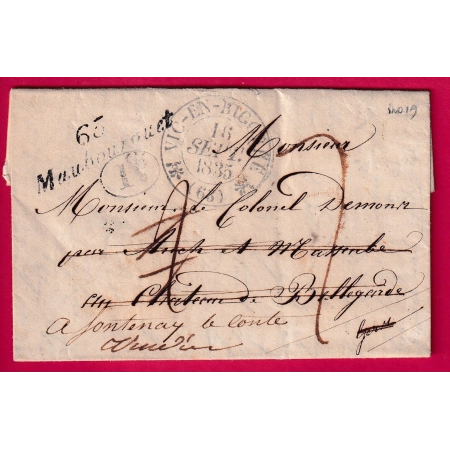 65
Maubourguet
R
VIC-EN-BIGORRE
16
SEPT.
1835
(65)
Monsieur
Monsieur le Colonel Demonr
par Auch et Masseube
au Chateau de Bellegarde
a fontenay le Conte
Vendée